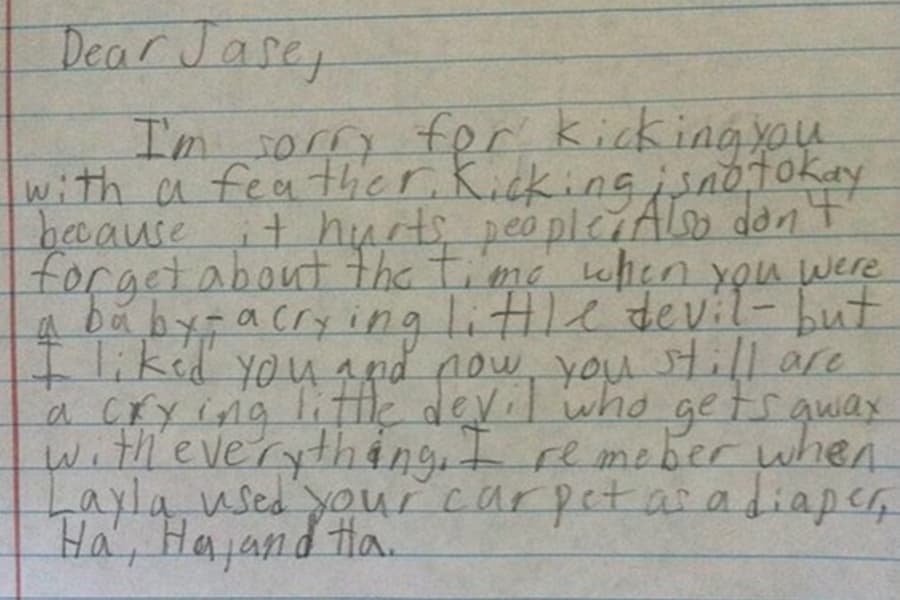 Dear Jase,
I'm sorry for kicking you
with a feather. Kicking is not okay
because it hurts people. Also don't
forget about the time when you were
a baby - a crying little devil - but
I liked you and now you still are
a crying little devil who gets away
with everything. I remeber when
Layla used your carpet as a diaper,
Ha, Ha, and Ha.